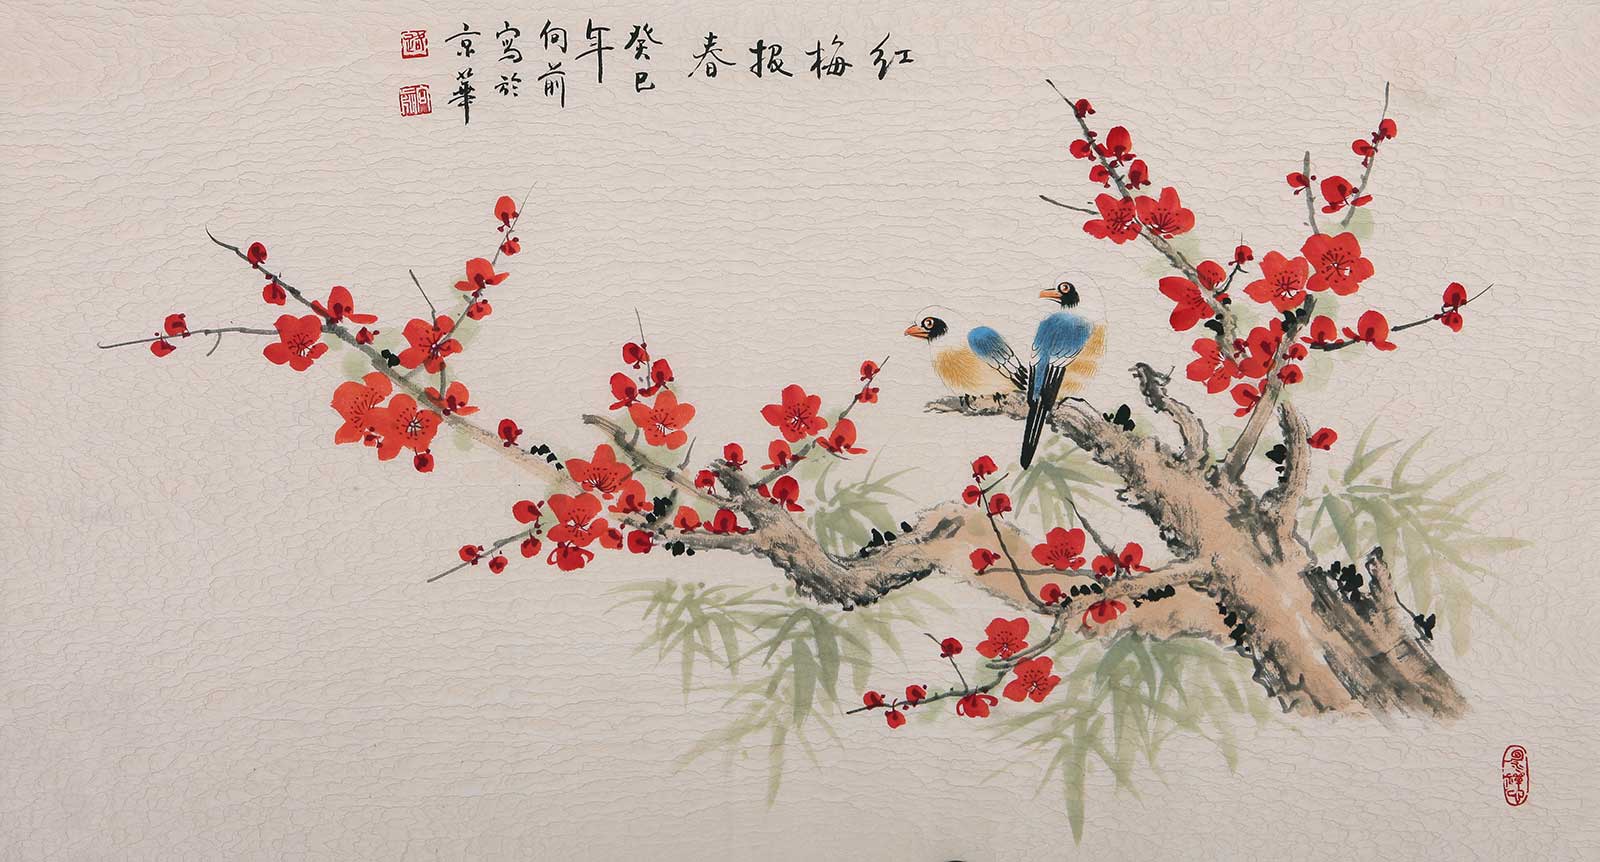 红梅报春
癸巳
年
向前
写於
京華